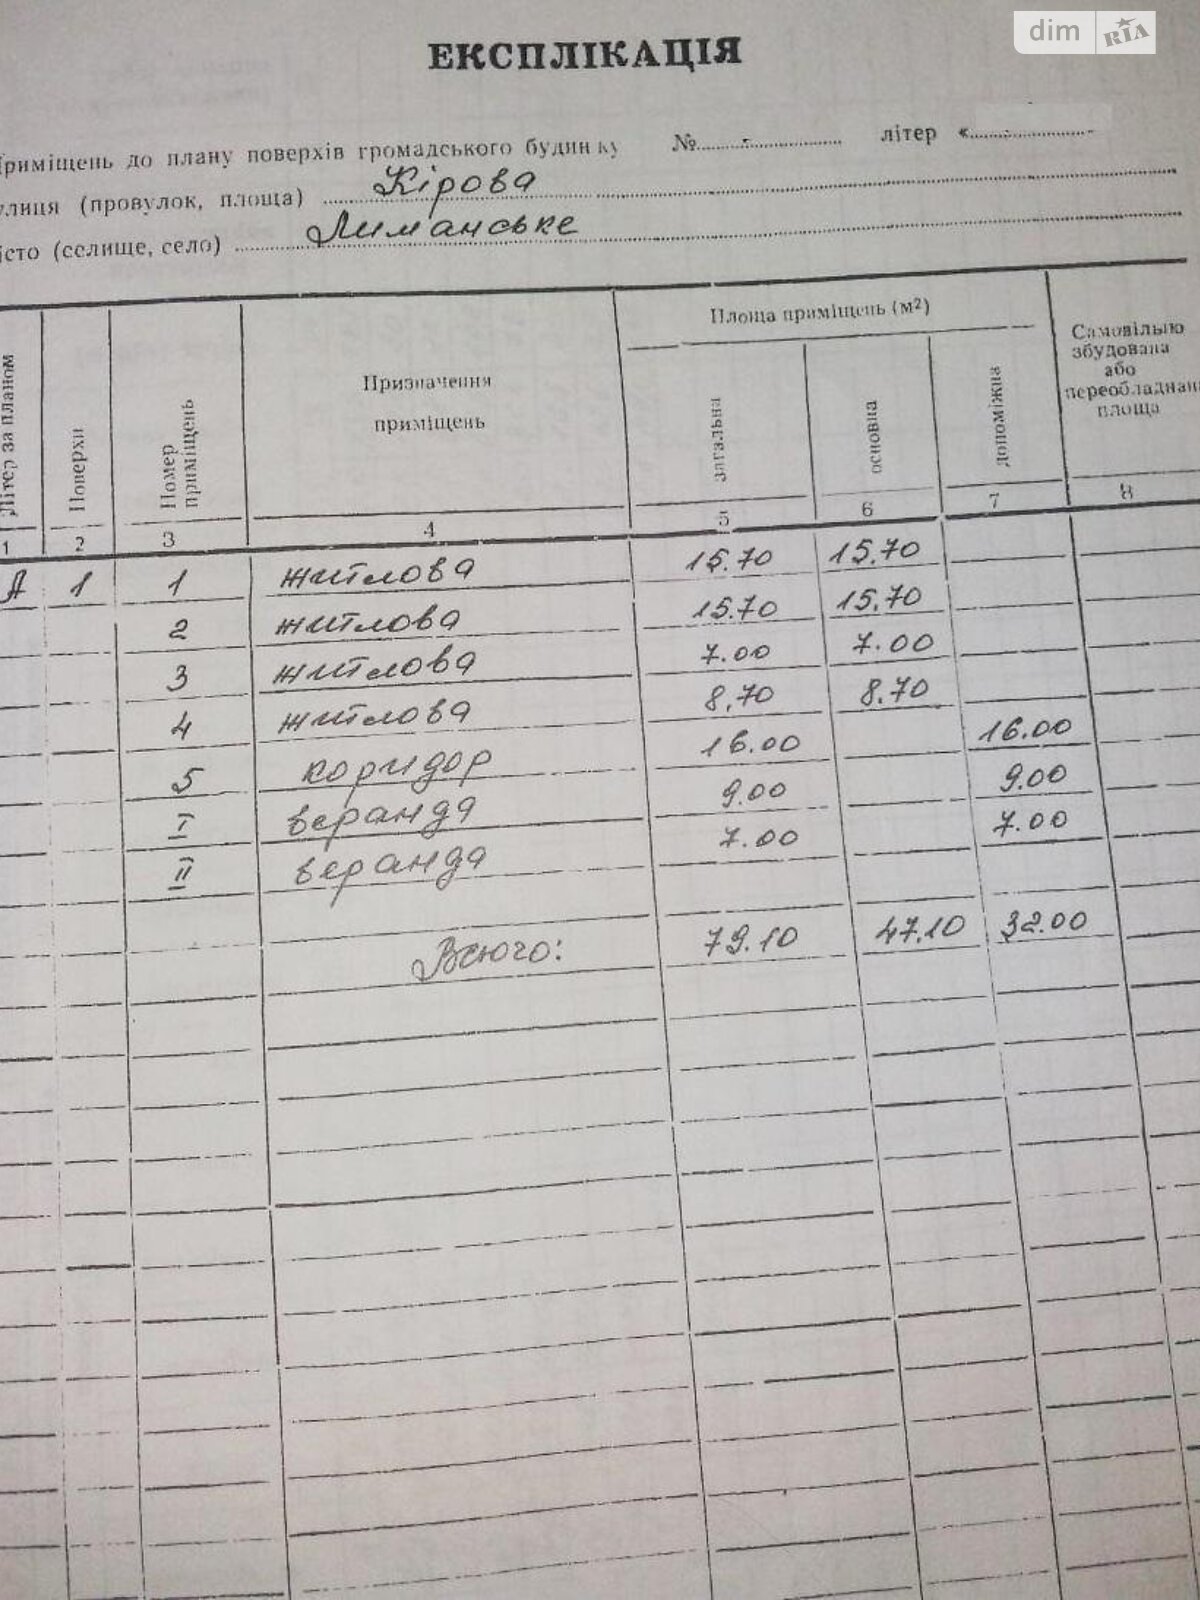 dim RIA
ЕКСПЛІКАЦІЯ
Приміщень до плану поверхів громадського будинку № - літер «
улиця (провулок, площа) Кірова
істо (селище, село) Лиманське
Літер за планом
Поверхи
Номер приміщень
Призначення приміщень
Площа приміщень (м²)
загальна
основна
допоміжна
Самовільно
збудована
або
переобладнан
площа
1 2 3 4 5 6 7 8
А 1 1 житлова 15.70 15.70
2 житлова 15.70 15.70
3 житлова 7.00 7.00
4 житлова 8,70 8.70
5 коридор 16.00 16.00
I веранда 9.00 9.00
II веранда 7.00 7.00
Всього: 79.10 47.10 32.00